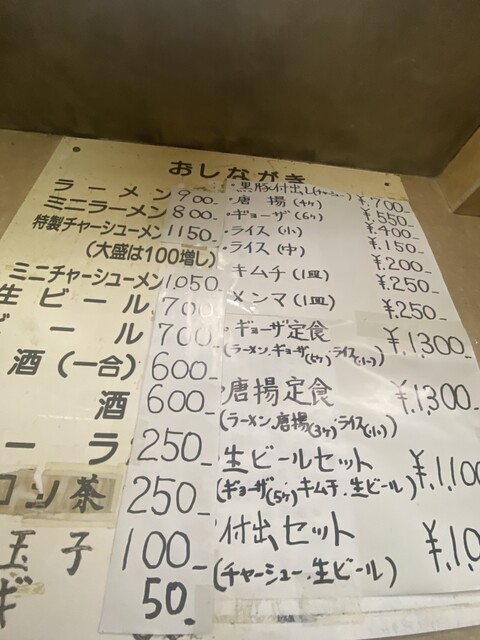 おしながき
ラーメン 900-
ミニラーメン 800-
特製チャーシューメン 1150-
(大盛は100増し)
ミニチャーシューメン 1,050-
生ビール 700-
ビール 700-
酒(一合) 600-
酒 600-
ーラ 250-
コン茶 250-
玉子 100-
ギ 50-
・黒豚付出し(チャーシュー) ¥,700-
・唐揚(4ヶ) ¥,550-
・ギョーザ(6ヶ) ¥,400-
・ライス(小) ¥,150-
・ライス(中) ¥,200-
キムチ(1皿) ¥,250-
メンマ(1皿) ¥,250-
・ギョーザ定食 ¥,1300-
(ラーメン.ギョーザ(6ヶ).ライス(小))
・唐揚定食 ¥,1,300-
(ラーメン.唐揚(3ヶ).ライス(小))
・生ビールセット ¥,1,100
(ギョーザ(5ヶ).キムチ.生ビール)
・付出しセット ¥,1,0
(チャーシュー.生ビール)